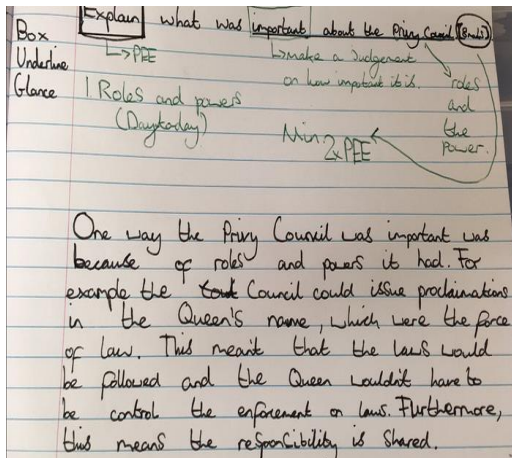 Box
Underline
Glance
Explain what was important about the Privy Council (8mks)
↳PEE
↳make a Judgement
on how important it is.
roles
and
the
power.
1 Roles and powers
(Day today)
Min
2x PEE
One way the Privy Council was important was
because of roles and powers it had. For
example the Council could issue proclamations
in the Queen's name, which were the force
of law. This meant that the laws would
be followed and the Queen wouldn't have to
be control the enforcement on laws. Furthermore,
this means the responcibility is shared.